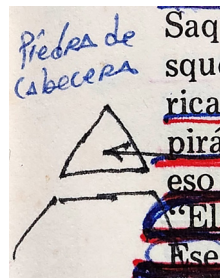 Piedra de
Cabecera
Saq
squ
rica
pira
eso
“El
Ese